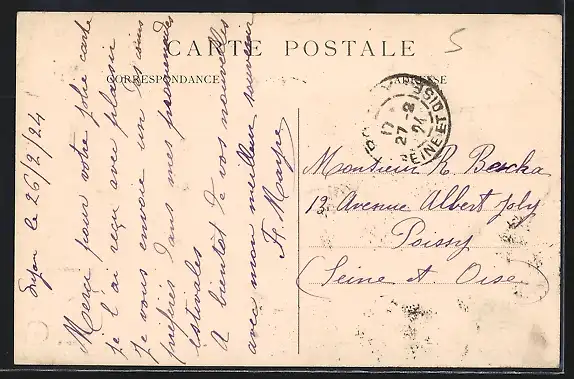 CARTE POSTALE
CORRESPONDANCE
ADRESSE
5
le 26/2/24
Merci pour votre jolie carte
je l'ai reçu avec plaisir
Je vous envoie un de mes
préférés dans mes promenades
estivales
A bientôt de vos nouvelles
avec mon meilleur souvenir
17
27-2
24
SEINE ET OISE
Monsieur R
13 Avenue Albert Joly
Poissy
(Seine et Oise)